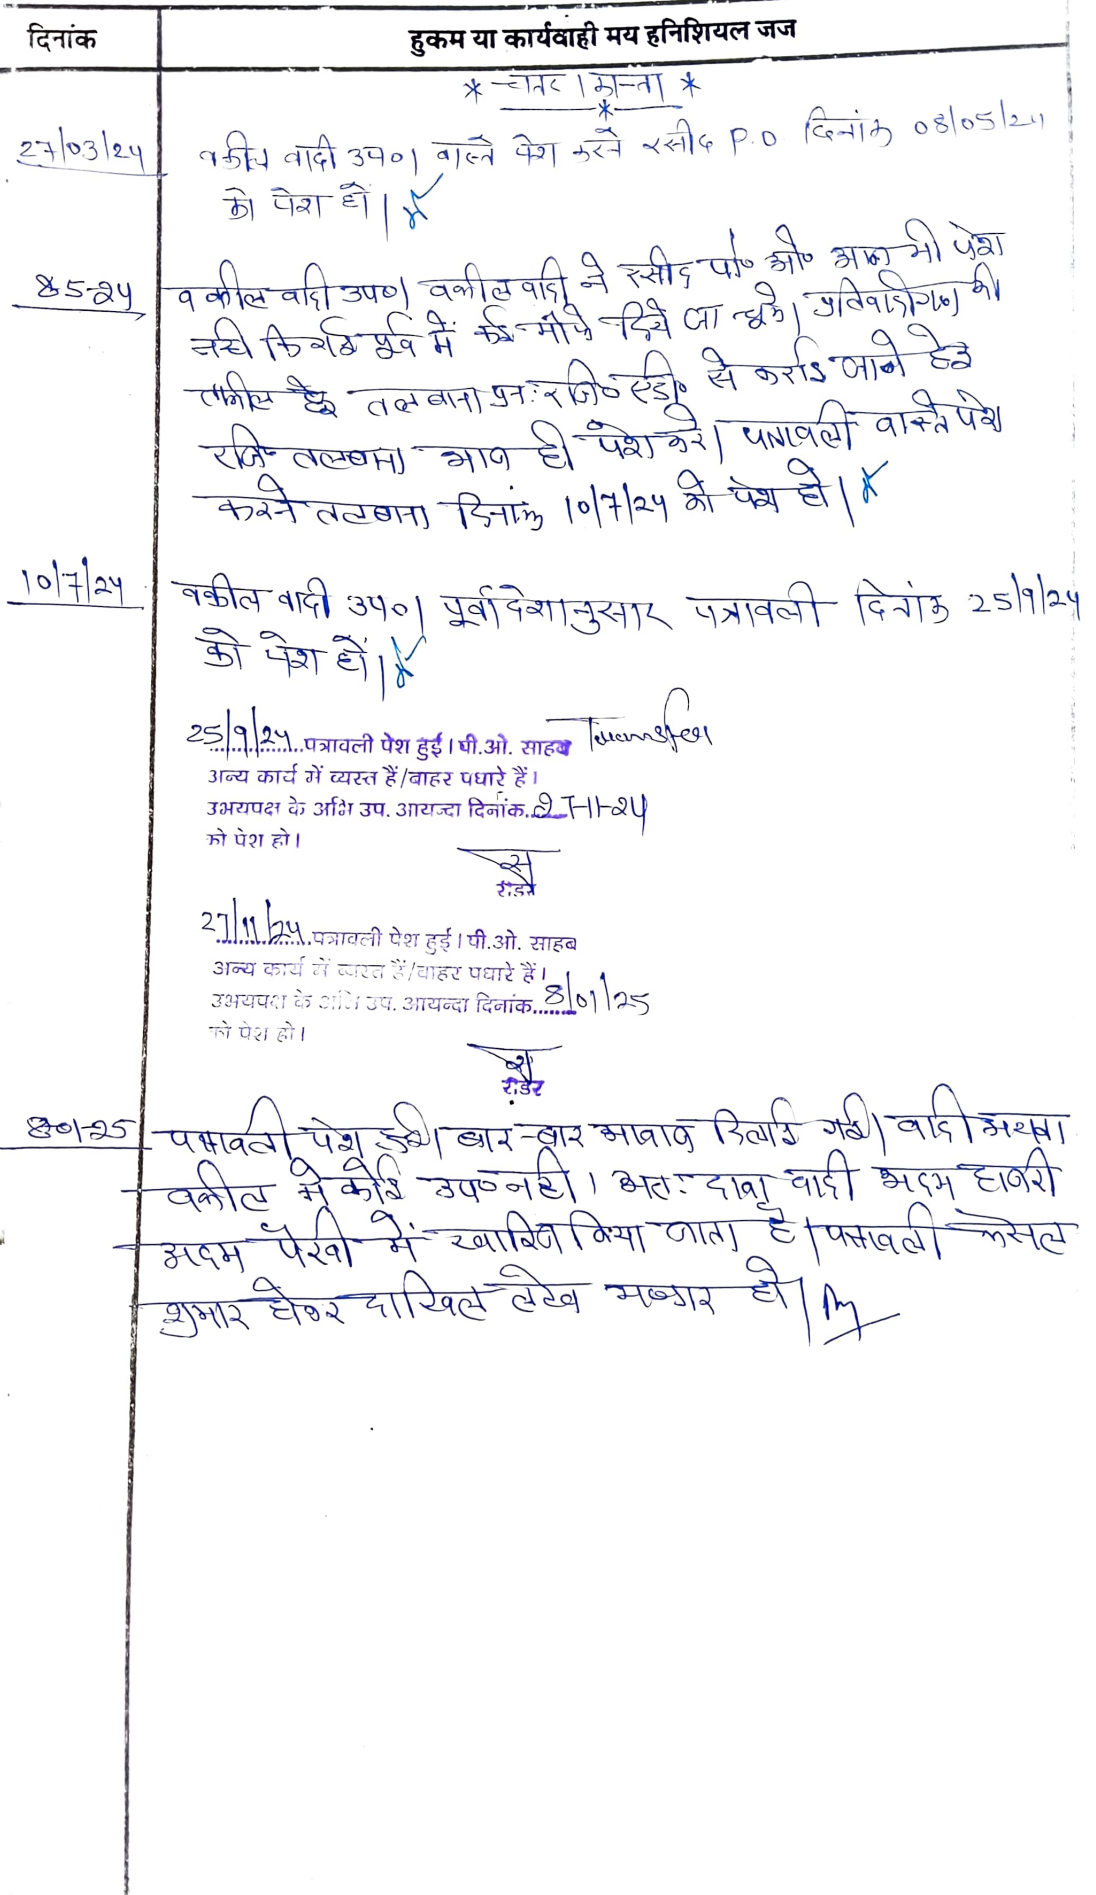 दिनांक
हुकम या कार्यवाही मय हनिशियल जज
* चतर / कान्ता *
*
27/03/24
वकील वादी उप०। वास्ते पेश करने रसीद P.O दिनांक 08/05/24
को पेश हों।
8-5-24
वकील वादी उप०। वकील वादी ने रसीद पो० ओ० आज भी पेश
नही कि पूर्व में कई मौके दिये जा चूके। प्रतिवादीगण की
तामील हेतु तलबाना पुनः रजि० एडी० से कराई जाने हेतु
रजि० तलबाना आज ही पेश करे। पत्रावली वास्ते पेश
करने तलबाना दिनांक 10/7/24 को पेश हो।
10/7/24
वकील वादी उप०। पूर्वादेशानुसार पत्रावली दिनांक 25/9/24
को पेश हों।
25/9/24 पत्रावली पेश हुई। पी.ओ. साहब Transfer
अन्य कार्य में व्यस्त हैं/बाहर पधारे हैं।
उभयपक्ष के अभि उप. आयन्दा दिनांक 27-11-24
को पेश हो।
रीडर
27/11/24 पत्रावली पेश हुई। पी.ओ. साहब
अन्य कार्य में व्यस्त हैं/बाहर पधारे हैं।
उभयपक्ष के अभि उप. आयन्दा दिनांक 8/01/25
को पेश हो।
रीडर
8-01-25
पत्रावली पेश हुई। बार-बार आवाज दिलाई गई। वादी अथवा
वकील मे कोई उप० नही। अतः दावा वादी अदम हाजरी
अदम पैरवी में खारिज किया जाता है। पत्रावली फैसल
शुमार होकर दाखिल लेख भण्डार हो।